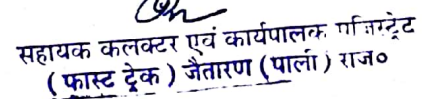 सहायक कलक्टर एवं कार्यपालक मजिस्ट्रेट
( फास्ट ट्रेक ) जैतारण (पाली) राज०